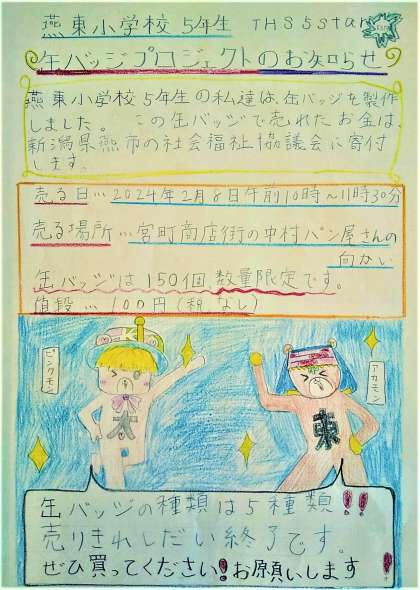 燕東小学校 5年生 THS 5star
缶バッジプロジェクトのお知らせ
燕東小学校5年生の私達は、缶バッジを製作
しました。この缶バッジで売れたお金は、
新潟県燕市の社会福祉協議会に寄付
します。
売る日…2024年2月8日午前10時～11時30分
売る場所…宮町商店街の中村パン屋さんの
向かい
缶バッジは150個、数量限定です。
値段…100円(税なし)
ピンクモン
アカモン
大
東
缶バッジの種類は5種類!!
売りきれしだい終了です。
ぜひ買ってください!お願いします!